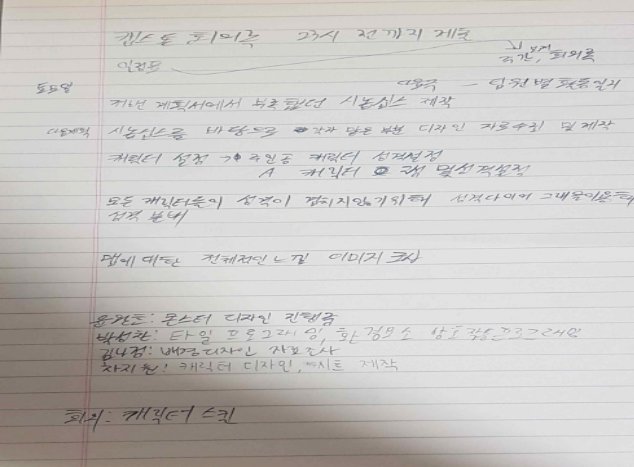 컴스톤 회의록 23시 전까지 제출
일정표
주간, 회의록
토요일 다음주 - 팀원별 활동일지
저번 계획서에서 부족했던 시놉시스 제작
다음계획 시놉시스를 바탕으로 각자 맡은 부분 디자인 자료수집 및 제작
캐릭터 설정 → 주인공 캐릭터 성격설정
A 캐릭터 및 성격설정
모든 캐릭터들의 성격이 겹치지않기위해 성격다이어그램을이용해
성격 분배
맵에 대한 전체적인 느낌 이미지 조사
몬스터 디자인 진행중
박성찬: 타일 프로그래밍, 환경요소 상호작용프로그래밍
배경디자인 자료조사
차지원: 캐릭터 디자인, 시트 제작
회의: 캐릭터 스킨